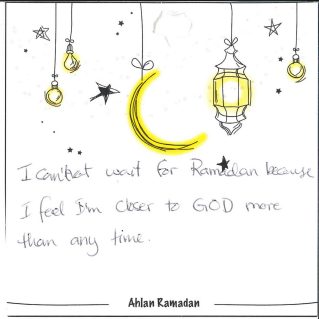 I can't wait for Ramadan because
I feel I'm closer to GOD more
than any time.
Ahlan Ramadan